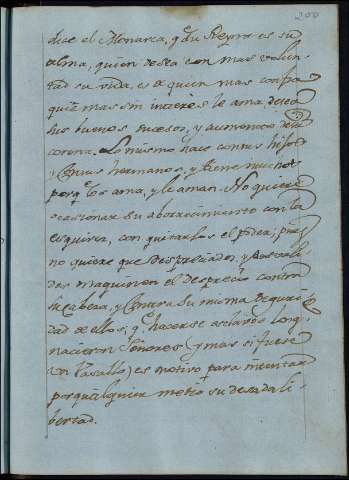 200
dice el Monarca, q̃ su Reyno es su
alma, quien desea con mas volun-
tad su vida, es quien mas confia
quien mas sin interes le ama, desea
sus buenos sucesos, y aumentos de la
corona. Lo mismo hace con sus hijos
y con sus hermanos, y tiene muchos
porq̃ los ama, y le aman. No quiere
ocasionar su aborrecimiento con la
esquivez, con quitarles el poder; pues
no quiere que despreciados, y
maquinen el desprecio contra
su cabeza, y contra su misma seguri-
dad de ellos; q̃ hacerse esclavos los q̃
nacieron Señores (y mas si fuese
un Vasallo) es motivo para intentar
por qualquier metio su deseada li-
bertad.